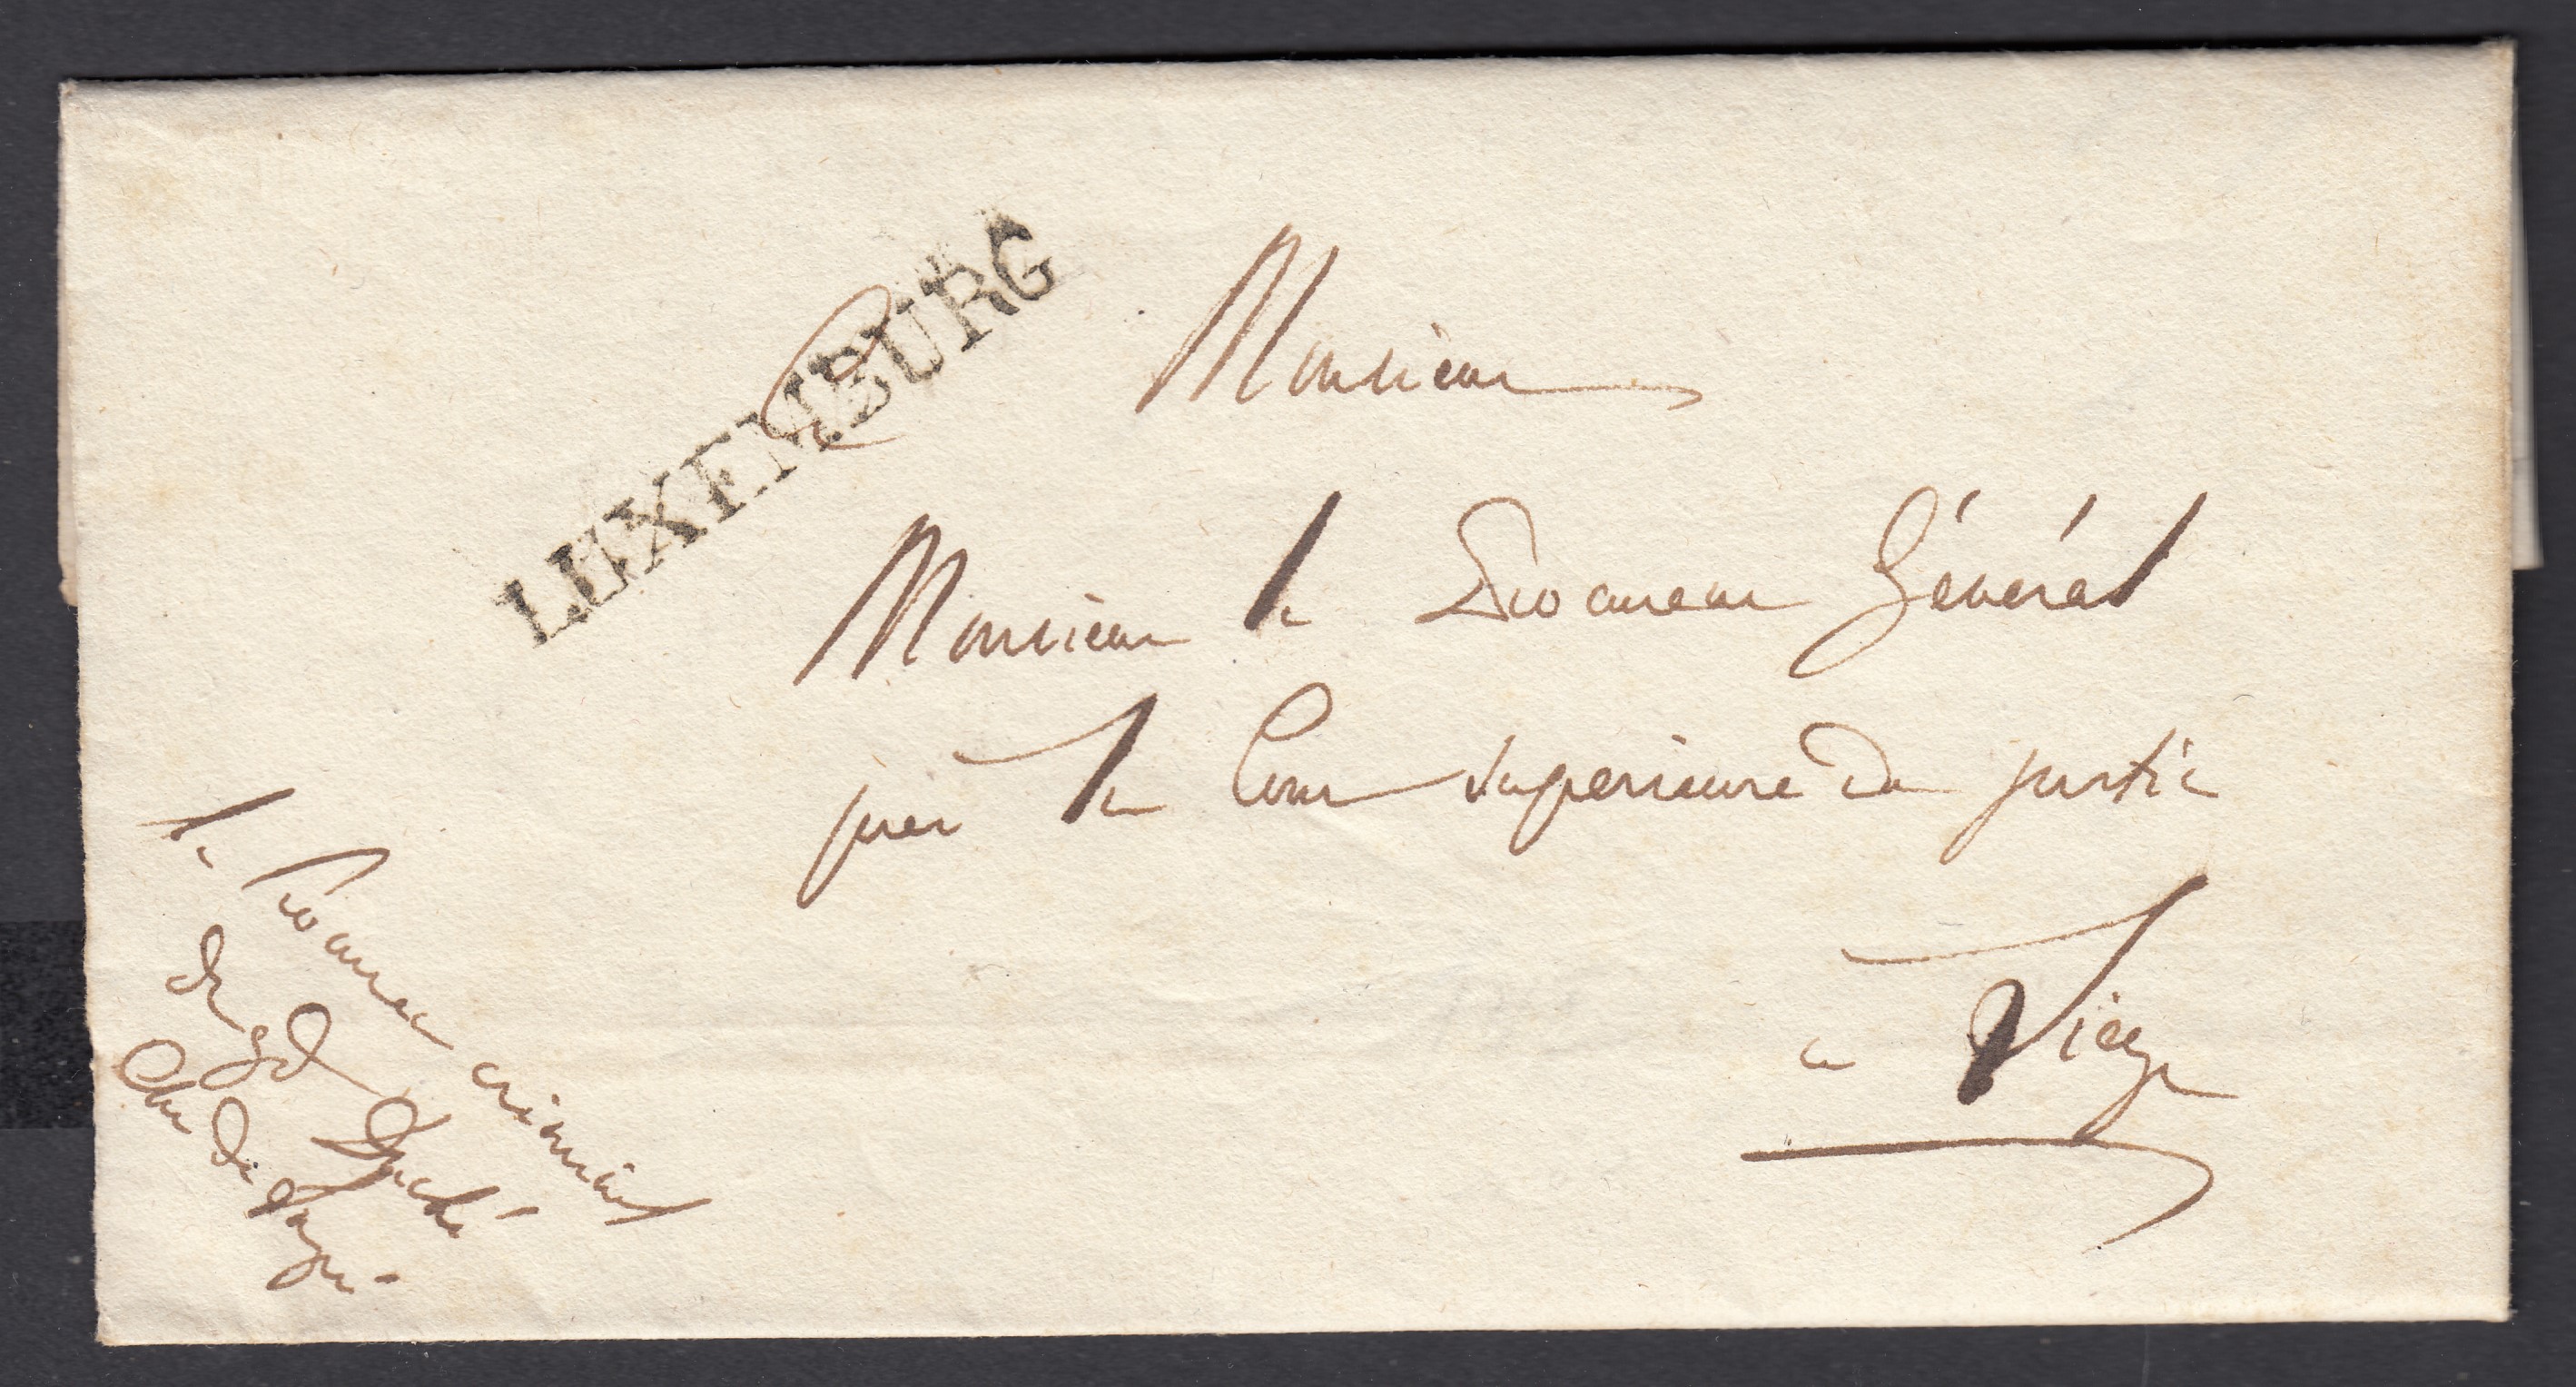 LUXEMBURG
Monsieur
Monsieur le Procureur Général
près la Cour supérieure de justice
à Liége
le Procureur criminel
du gd Duché